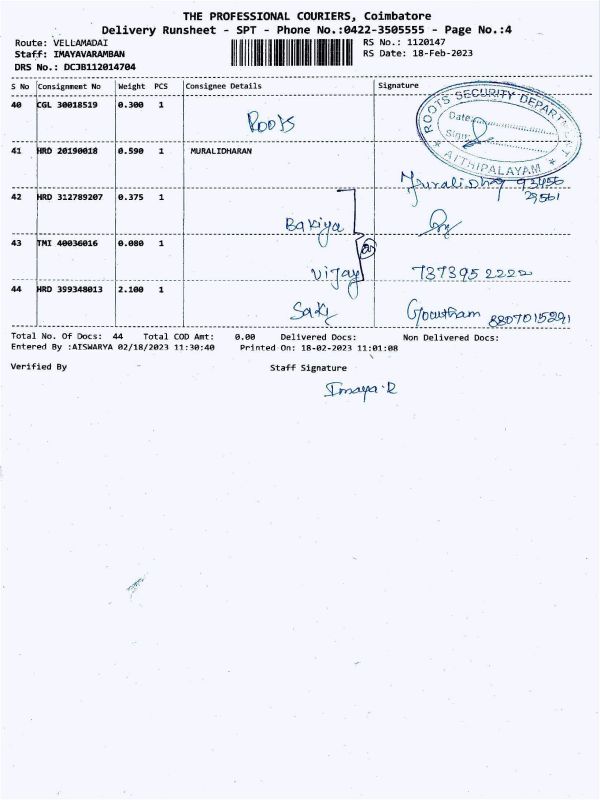 THE PROFESSIONAL COURIERS, Coimbatore
Delivery Runsheet - SPT - Phone No.:0422-3505555 - Page No.:4
Route: VELLAMADAI
Staff: IMAYAVARAMBAN
DRS No.: DCJB112014704
RS No.: 1120147
RS Date: 18-Feb-2023
S No Consignment No Weight PCS Consignee Details Signature
40 CGL 30018519 0.300 1 Roots
ROOTS SECURITY DEPARTMENT
Date
Sign
ATHIPALAYAM
41 HRD 20190018 0.590 1 MURALIDHARAN
Muralidhar 93456
29561
42 HRD 312789207 0.375 1
Bakiya
43 TMI 40036016 0.080 1
Vijay 7373952222
44 HRD 399348013 2.100 1
Goutham 8807015291
Total No. Of Docs: 44 Total COD Amt: 0.00 Delivered Docs: Non Delivered Docs:
Entered By :AISWARYA 02/18/2023 11:30:40 Printed On: 18-02-2023 11:01:08
Verified By Staff Signature
Imaya.R